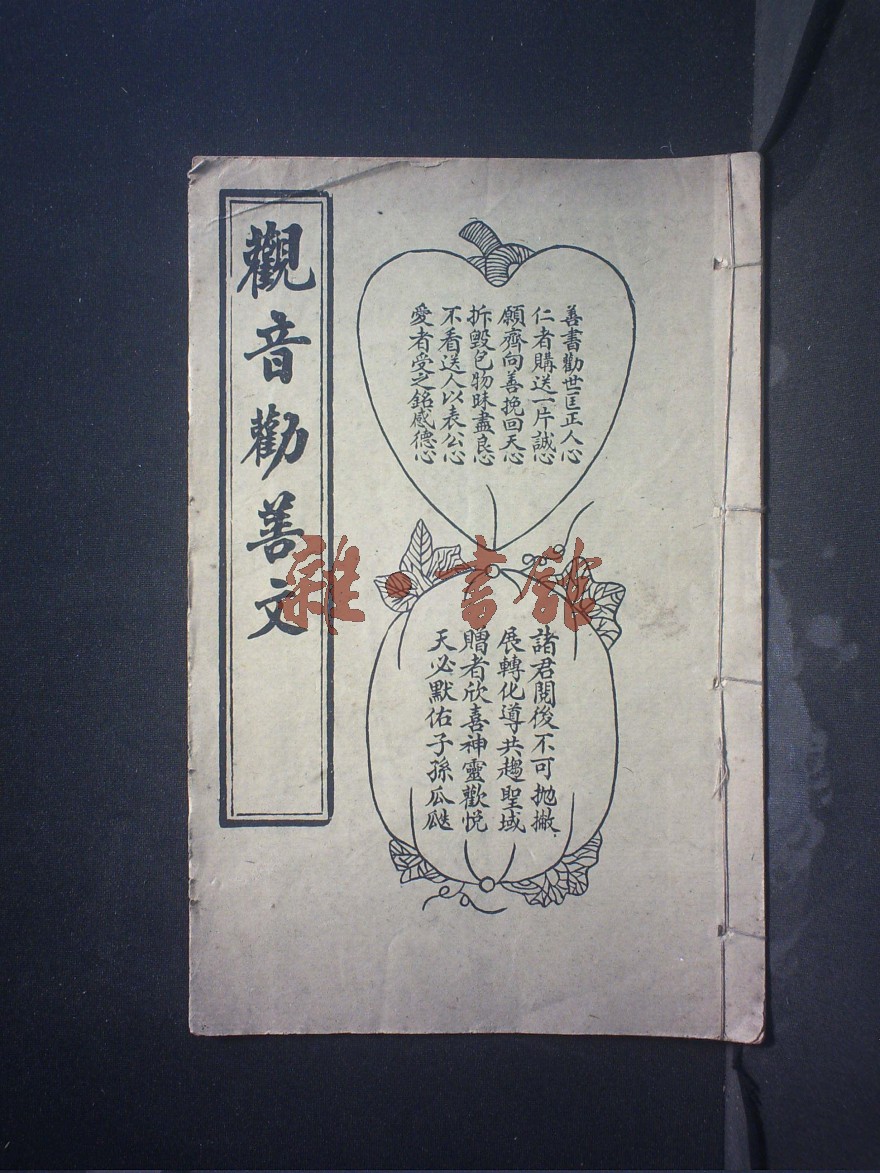 觀音勸善文
善書勸世匡正人心
仁者購送一片誠心
願齊向善挽回天心
拆毀包物昧盡良心
不看送人以表公心
愛者受之銘感德心
諸君閱後不可拋撇
展轉化導共趨聖域
贈者欣喜神靈歡悅
天必默佑子孫瓜瓞
雜書館